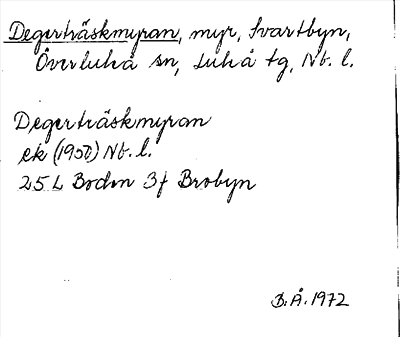 Degerträskmyran, myr, Svartbyn,
Överluleå sn, Luleå tg, Nb. l.
Degerträskmyran
ek (1950) Nb. l.
25 L Boden 3f Brobyn
B.Å. 1972